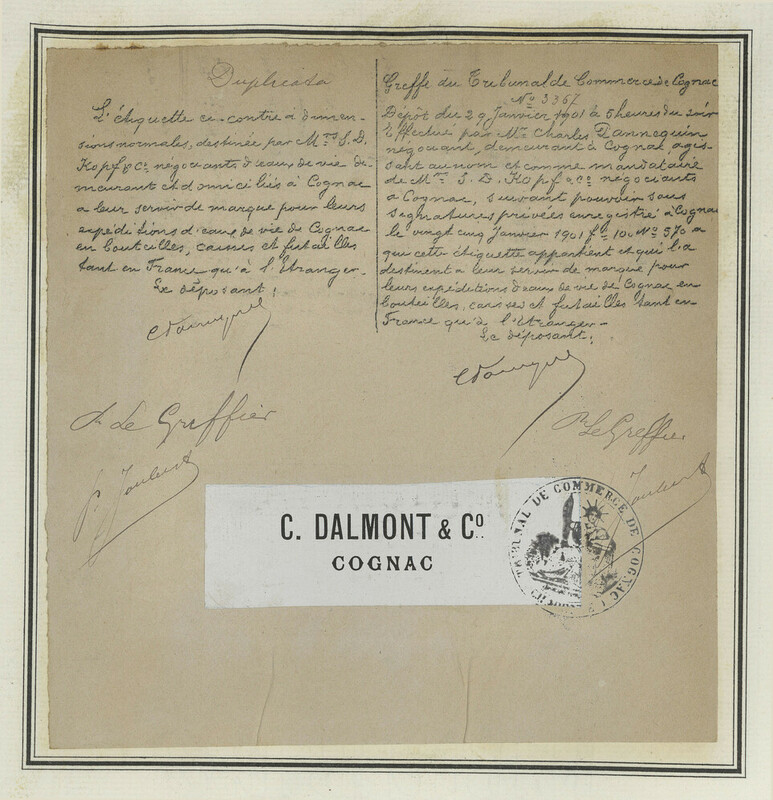 Duplicata
L'étiquette ci-contre à dimen-
sions normales, destinée par Mrs S. D.
Kopf & Co négociants d'eaux de vie de-
meurant et domiciliés à Cognac
a leur servir de marque pour leurs
expéditions d'eaux de vie de Cognac
en bouteilles, caisses et futailles
tant en France qu'à l'étranger.
Le déposant:
P. Le Greffier
Greffe du Tribunal de Commerce de Cognac
No 3367
Dépôt du 29 Janvier 1901 à 5 heures du soir
Effectué par Mr Charles Dannequin
négociant, demeurant à Cognac, agis-
sant au nom et comme mandataire
de Mrs S. D. Kopf & Co négociants
à Cognac, suivant pouvoir sous
signatures privées enregistré à Cognac
le vingt cinq Janvier 1901 fo 10. No 570 a
qui cette étiquette appartient et qui la
destinent a leur servir de marque pour
leurs expéditions d'eaux de vie de Cognac en
bouteilles, caisses et futailles tant en
France qu'à l'étranger.-
Le déposant:
P. Le Greffier
C. DALMONT & Co.
COGNAC
TRIBUNAL DE COMMERCE DE COGNAC